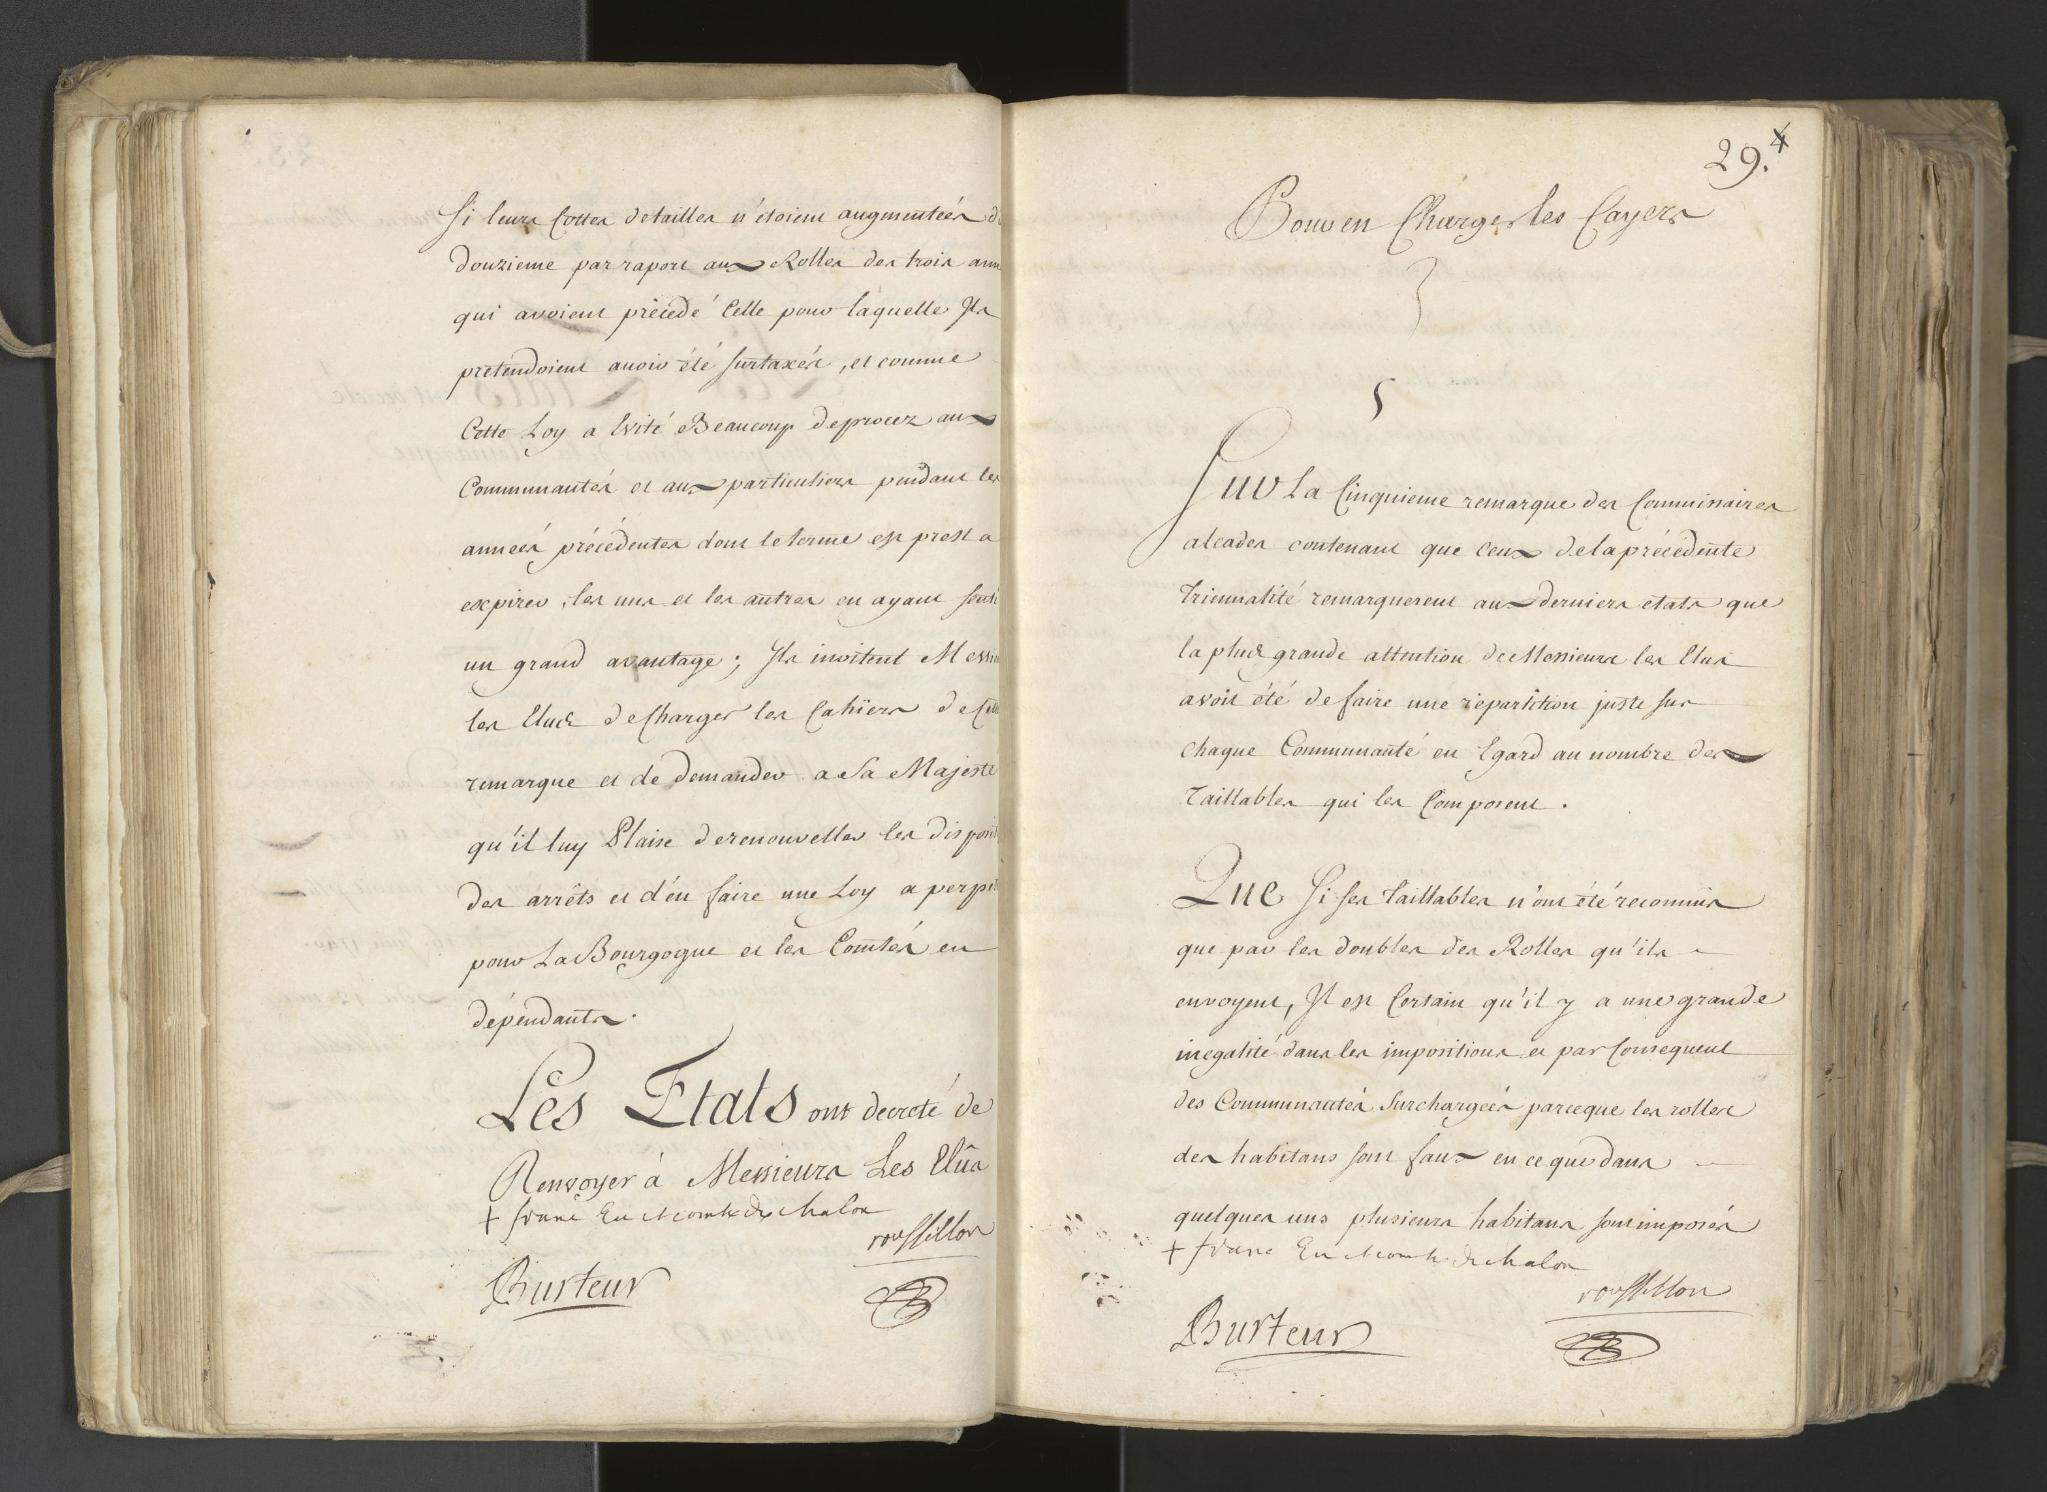 Si leurs Cottes detailles n'étoient augmentées d
douzieme par raport aux Rolles des trois ann
qui avoient précédé Celle pour laquelle Ils
pretendoient avoir été surtaxés, et comme
Cette Loy a Evité Beaucoup deprocez aux
Communautés et aux particuliers pendant les
années précédentes dont le terme est prest a
expirer, les uns et les autres en ayant senti
un grand avantage; Ils invitent Messie
les Elus deCharger les Cahiers deCette
remarque et de demander a Sa Majesté
qu'il luy Plaise derenouveller les disposit
des arrêts et d'en faire une Loy a perpet
pour La Bourgogne et les Comtés en
dépendants.
Les Etats ont decreté de
Renvoyer à Messieurs Les Elûs
+ franc Ev et comte de chalon
roussillon
Burteur
29.
Pour en Charger les Cayers
5
Sur La Cinquieme remarque des Commissaires
alcades contenant que ceux delaprécédente
Triennalité remarquerent aux derniers etats que
la plus grande attention de Messieurs les Elus
avoit été defaire une répartition juste sur
chaque Communauté eu Egard au nombre des
Taillables qui les Composent.
Que Si ses taillables n'ont été reconnus
que par les doubles des Rolles qu'ils
envoyent, Il est Certain qu'il y a une grande
inegalité dans les impositions et par Consequent
des Communautés Surchargées parceque les rolles
des habitans sont faux en ce que dans
quelques uns plusieurs habitans sont imposés
+ franc Ev et comte de chalon
roussillon
Burteur